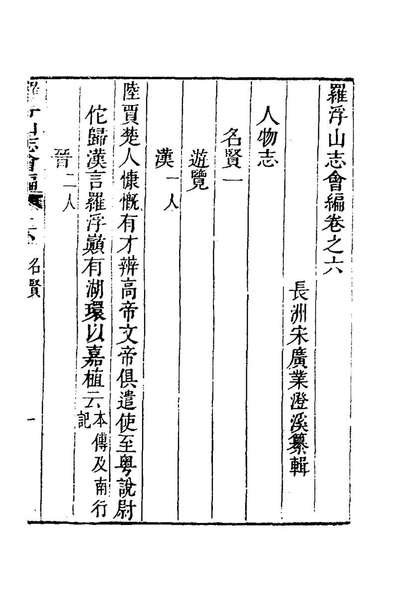 羅浮山志會編卷之六
長洲宋廣業澄溪纂輯
人物志
名賢一
遊覽
漢一人
陸賈楚人慷慨有才辨高帝文帝俱遣使至粵說尉
佗歸漢言羅浮巔有湖環以嘉植云本傳及南行記
晉二人
羅浮山志會編 卷六 名賢 一